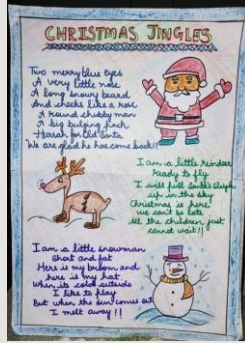 CHRISTMAS JINGLES
Two merry blue eyes
A very little nose
A long snowy beard
And cheeks like a rose
A round chubby man
A big bulging pack
Hurrah for Old Santa
We are glad he has come back!!
I am a little reindeer
Ready to fly
I will pull Santa's sleigh
up in the sky
Christmas is here
we can't be late
All the children just
cannot wait!!
I am a little snowman
Short and fat
Here is my broom and
here is my hat
When its cold outside
I like to play
But when the sun comes out
I melt away!!